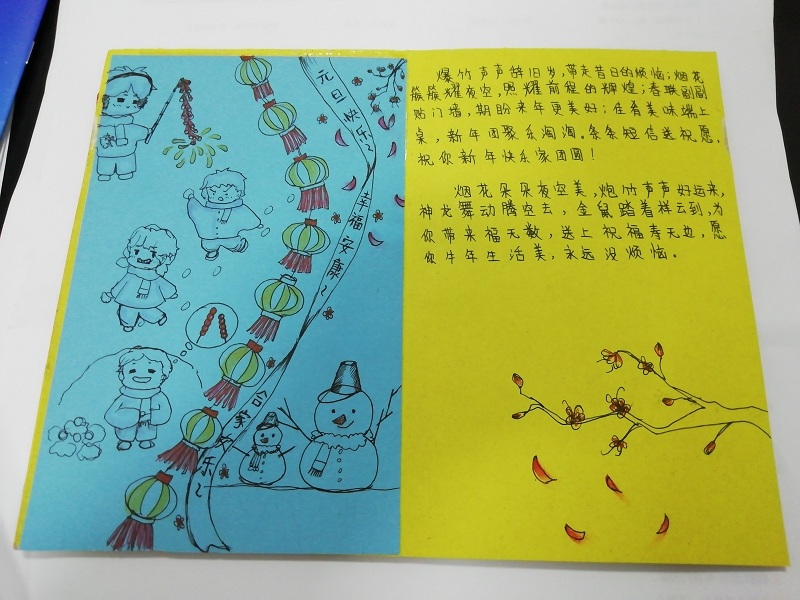 元旦快乐~
幸福安康~
合家欢乐~
爆竹声声辞旧岁,带走昔日的烦恼;烟花
簇簇耀夜空,照耀前程的辉煌;春联副副
贴门墙,期盼来年更美好;佳肴美味端上
桌,新年团聚乐淘淘。条条短信送祝愿,
祝你新年快乐家团圆!
烟花朵朵夜空美,炮竹声声好运来,
神龙舞动腾空去,金鼠踏着祥云到,为
你带来福无数,送上祝福寿无边,愿
你牛年生活美,永远没烦恼。